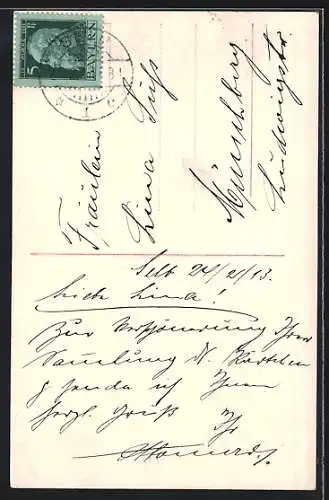 5
BAYERN
Fräulein
Lina Süß
Münchberg
Ludwigstr.
Selb 24/2/13.
Liebe Lina!
Zur Verschönerung Ihrer
Sammlung Kärtchen
sende ich Ihnen
herzl. Gruß
Ihr